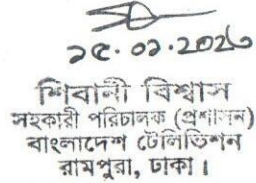 ১৫.০১.২০২৬
শিবানী বিশ্বাস
সহকারী পরিচালক (প্রশাসন)
বাংলাদেশ টেলিভিশন
রামপুরা, ঢাকা।